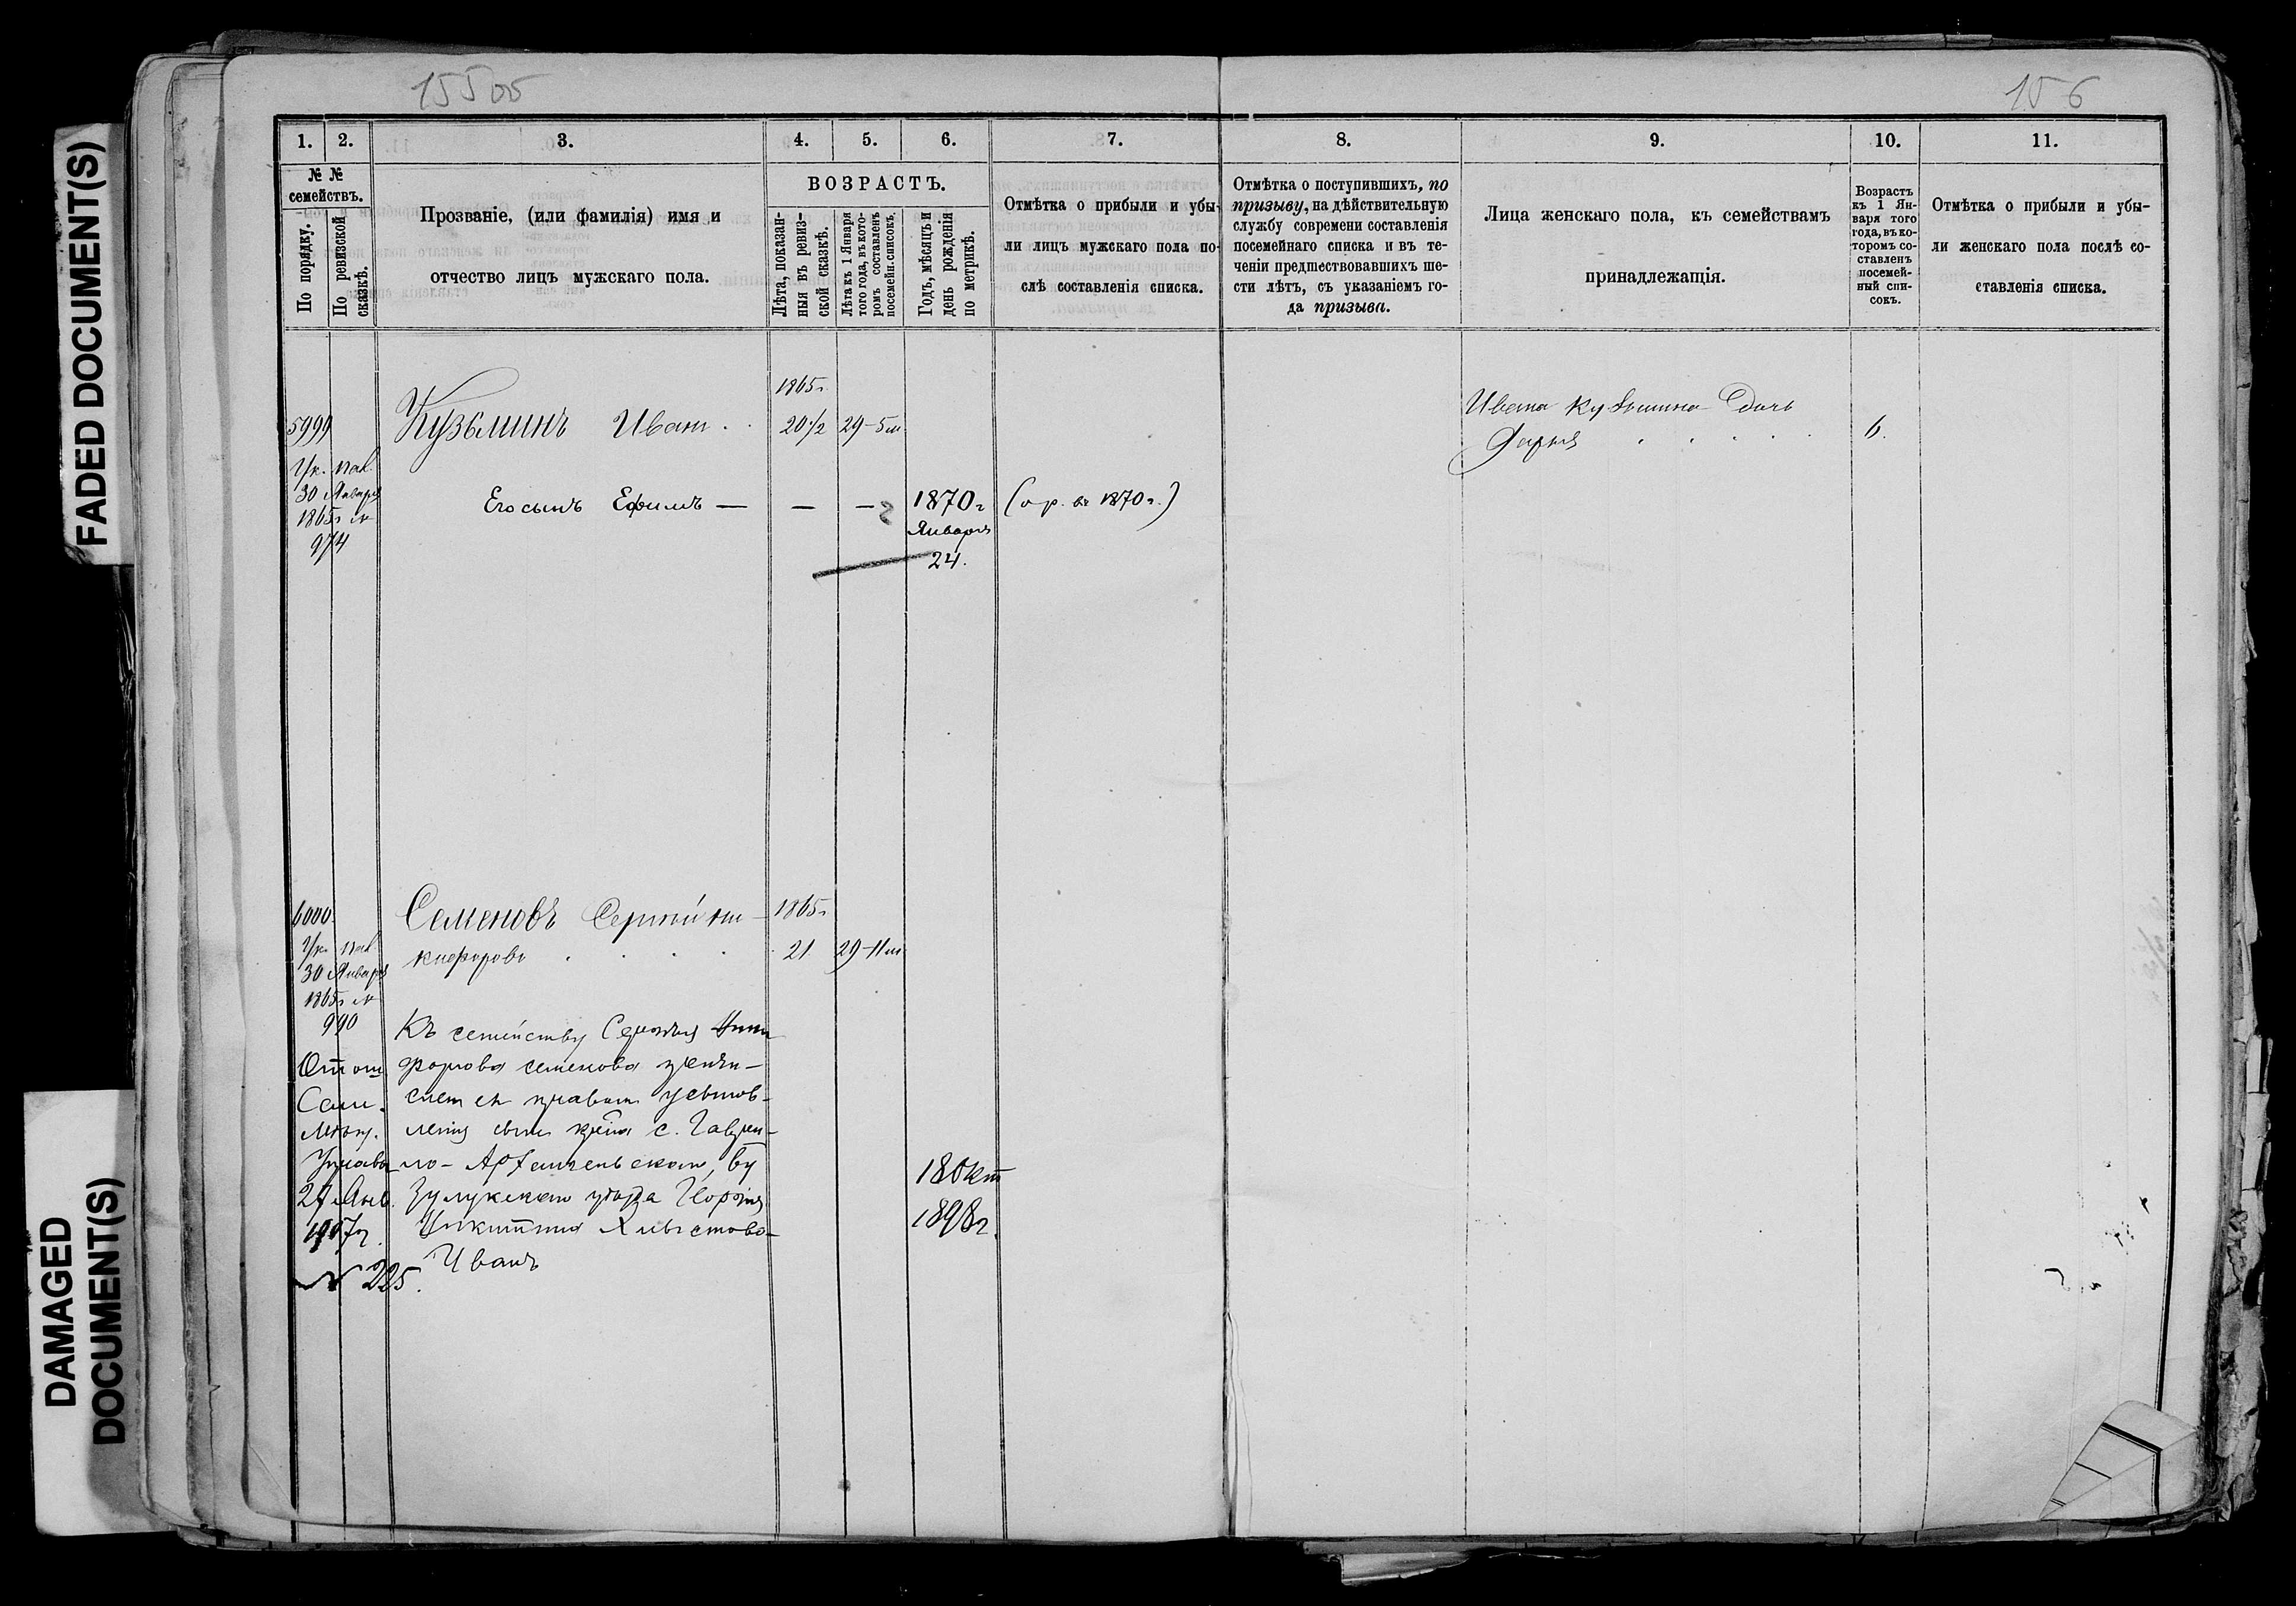 FADED DOCUMENT(S)
DAMAGED
DOCUMENT(S)
155 об
156
1.
2.
3.
4.
5.
6.
7.
8.
9.
10.
11.
№ №
семействъ.
По порядку.
По ревизской
сказкѣ.
Прозваніе, (или фамилія) имя и
отчество лицъ мужскаго пола.
ВОЗРАСТЪ.
Лѣта, показан-
ныя въ ревиз-
ской сказкѣ.
Лѣта къ 1 Января
того года, въ кото-
ромъ составленъ
посемейн. списокъ.
Годъ, мѣсяцъ и
день рожденія
по метрикѣ.
Отмѣтка о прибыли и убы-
ли лицъ мужскаго пола по-
слѣ составленія списка.
Отмѣтка о поступившихъ, по
призыву, на дѣйствительную
службу современи составленія
посемейнаго списка и въ те-
ченіи предшествовавшихъ ше-
сти лѣтъ, съ указаніемъ го-
да призыва.
Лица женскаго пола, къ семействамъ
принадлежащія.
Возрастъ
къ 1 Ян-
варя того
года, въ ко-
торомъ со-
ставленъ
посемей-
ный спи-
сокъ.
Отмѣтка о прибыли и убы-
ли женскаго пола послѣ со-
ставленія списка.
1865г.
5999 Кузьминъ Иванъ 20½ 29-5м
Ук. Пал.
30 Января
1865г №
974
Его сынъ Ефимъ — — — 1870г
Января
24.
(пр. въ 1870г.)
Ивана Кузьмина дочь
Дарья 6.
6000 Семеновъ Сергѣй Ни- 1865г
кифоровъ 21 29-11м
Ук. Пал.
30 Января
1865г №
990
Къ семейству Сергѣя Ники
форова Семенова причи-
сленъ съ правами усынов-
ленія сынъ кр-на с. Гаври-
ло-Архангельскаго, Бу
зулукскаго уѣзда Георгія
Никитина Хлыстова-
Иванъ
Отнош
Сам.
Управы
27 Янв.
1907г.
№ 225.
18 Окт
1898г.